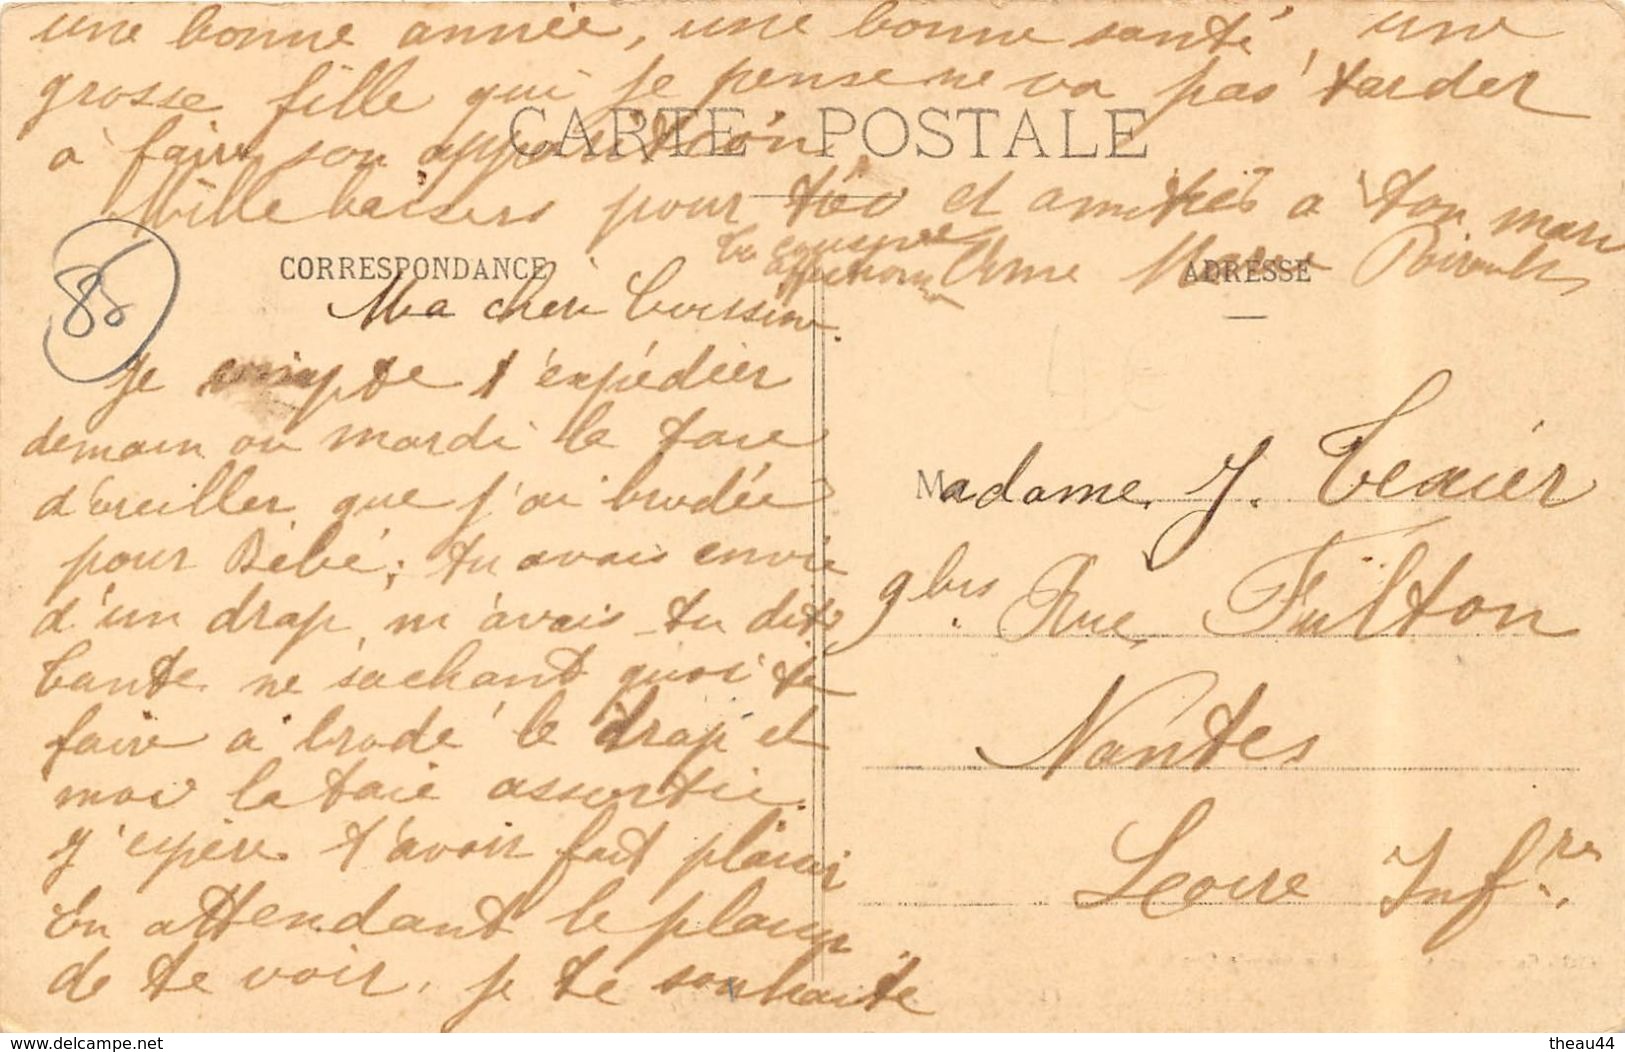 CARTE POSTALE
CORRESPONDANCE
Ma chère Cousine.
Je compte t'expédier
demain ou mardi la taie
d'oreiller que j'ai brodée
pour Bébé; tu avais envie
d'un drap, m'avais-tu dit,
tante ne sachant quoi te
faire a brodé le drap et
moi la taie assortie.
J'espère t'avoir fait plaisir
En attendant le plaisir
de te voir, je te souhaite
une bonne année, une bonne santé, une
grosse fille qui je pense ne va pas tarder
à faire son apparition.
Mille baisers pour toi et amitiés à ton mari
Ta cousine
ADRESSE
Madame J. Texier
9 bis Rue Fülton
Nantes
Loire Infre
85
www.delcampe.net
theau44